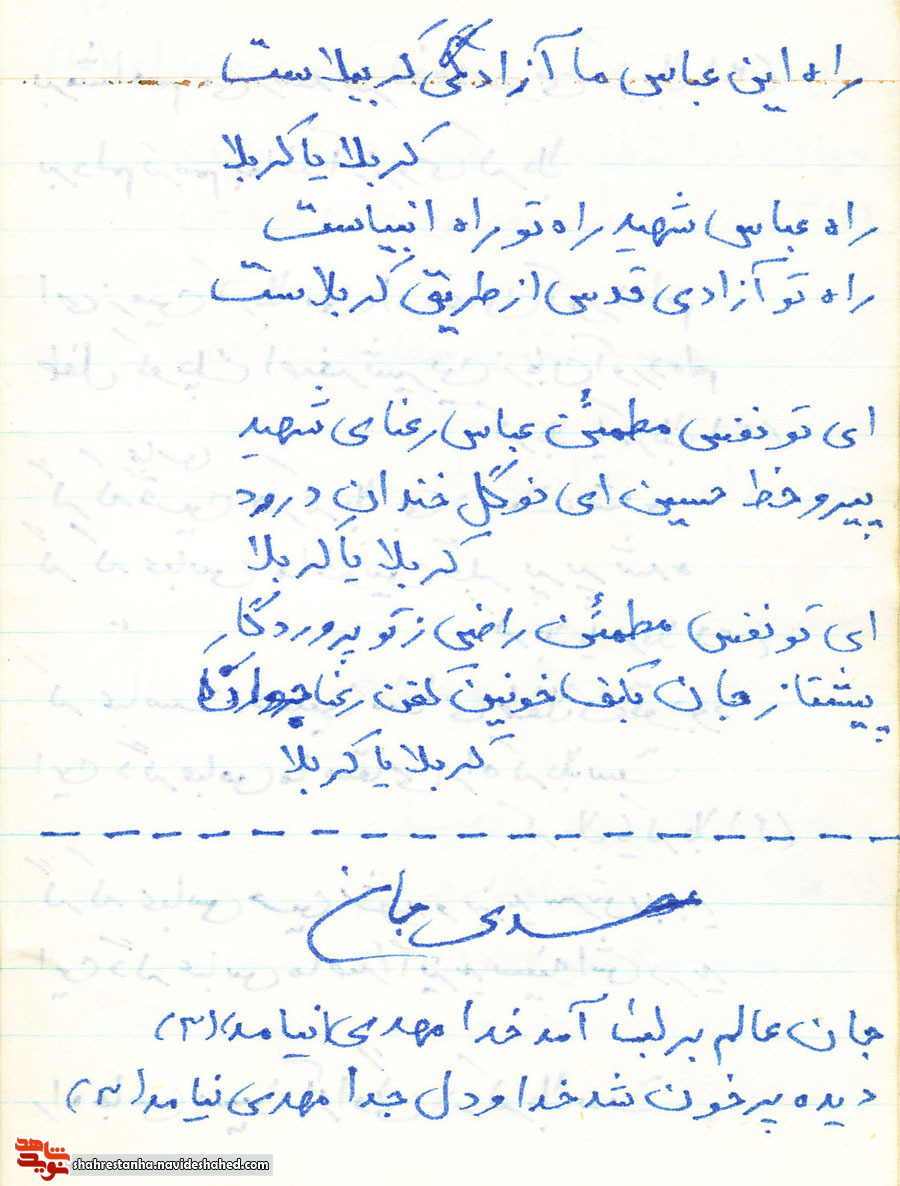 راه این عباس ما آزادگی کربلاست
کربلا یا کربلا
راه عباس شهید راه تو راه انبیاست
راه تو آزادی قدس از طریق کربلاست
ای تو نفس مطمئن عباس رعنای شهید
پیرو خط حسین ای نوگل خندان درود
کربلا یا کربلا
ای تو نفس مطمئن راضی ز تو پروردگار
پیشتاز جان بکف خونین کفن رعنا
کربلا یا کربلا
مهدی جان
جان عالم بر لبش آمد خدا مهدی نیامد (۳)
دیده پر خون شد خدا و دل جدا مهدی نیامد (۳)
نوید شاهد
shahrestanha.navideshahed.com